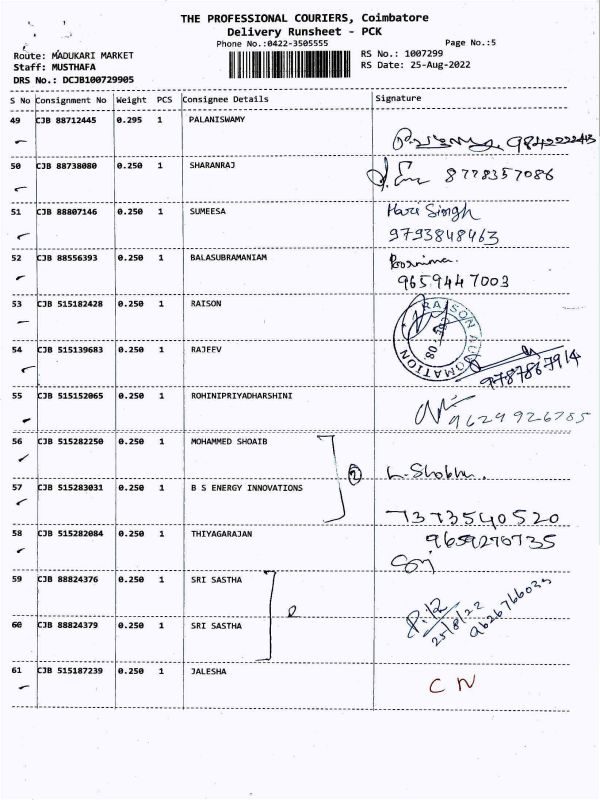 THE PROFESSIONAL COURIERS, Coimbatore
Delivery Runsheet - PCK
Phone No.:0422-3505555 Page No.:5
Route: MADUKARI MARKET RS No.: 1007299
Staff: MUSTHAFA RS Date: 25-Aug-2022
DRS No.: DCJB100729905
S No Consignment No Weight PCS Consignee Details Signature
49 CJB 88712445 0.295 1 PALANISWAMY
50 CJB 88738080 0.250 1 SHARANRAJ
8778357086
51 CJB 88807146 0.250 1 SUMEESA Hari Singh
9793848463
52 CJB 88556393 0.250 1 BALASUBRAMANIAM Poornima.
9659447003
53 CJB 515182428 0.250 1 RAISON
RAISON AUTOMATION
54 CJB 515139683 0.250 1 RAJEEV
9787867914
55 CJB 515152065 0.250 1 ROHINIPRIYADHARSHINI
9629926785
56 CJB 515282250 0.250 1 MOHAMMED SHOAIB
2
57 CJB 515283031 0.250 1 B S ENERGY INNOVATIONS
7373540520
58 CJB 515282084 0.250 1 THIYAGARAJAN 9659270735
59 CJB 88824376 0.250 1 SRI SASTHA
25/8/22
60 CJB 88824379 0.250 1 SRI SASTHA
61 CJB 515187239 0.250 1 JALESHA
C N